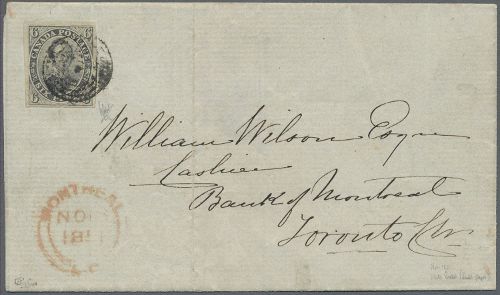 CANADA POSTAGE
6 6
6
William Wilson Esqre
Cashier
Bank of Montreal
Toronto CW.
MONTREAL
NO
18